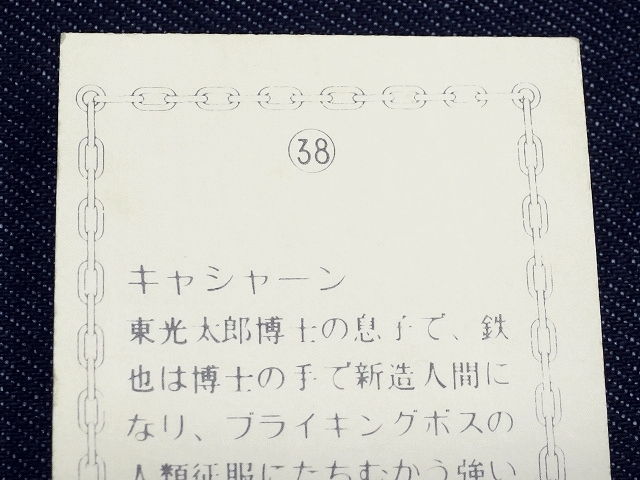 38
キャシャーン
東光太郎博士の息子で、鉄
也は博士の手で新造人間に
なり、ブライキングボスの
人類征服にたちむかう強い